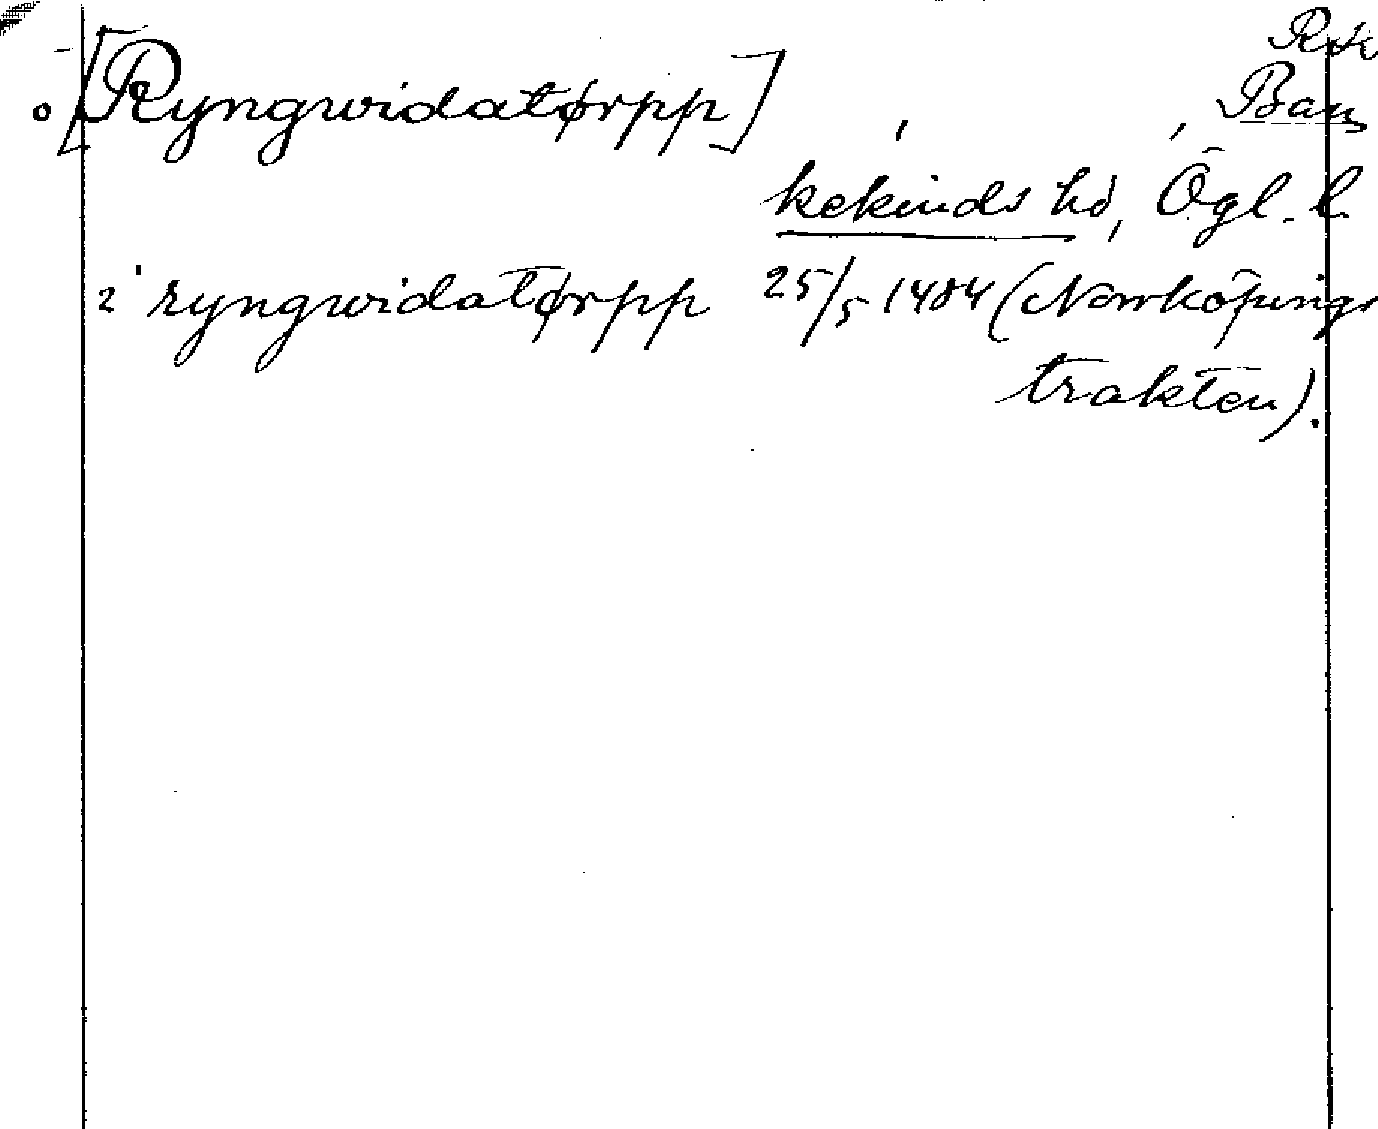 o [Ryngwidatørpp] , , Ban
kekinds hd, Ögl. l.
i ryngwidatørpp 25/5 1484 (Norrköpings
trakten).